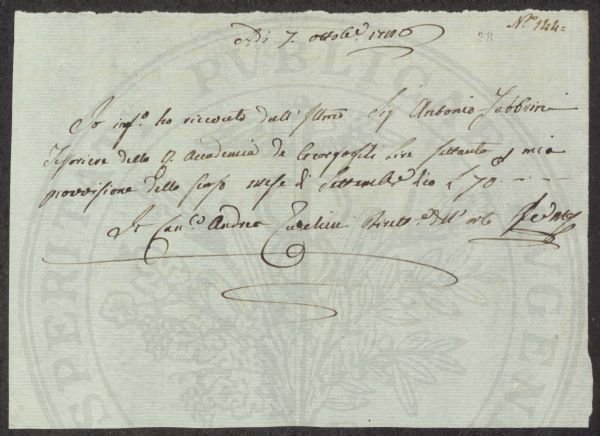 Nº. 144=
28
Adi 7. ottobe. 1786
Io infº. ho ricevuto dall'Illmo Sig Antonio Fabbrini
Tesoriere della R. Accademia de Georgofili Lire settanta p mia
provvisione dello scaso mese di Settembre dico L 70.--
Io Canco Andrea Zucchini Dirett.e dell'orto
PUBLICAE
PROSPERITATI AUGENDAE